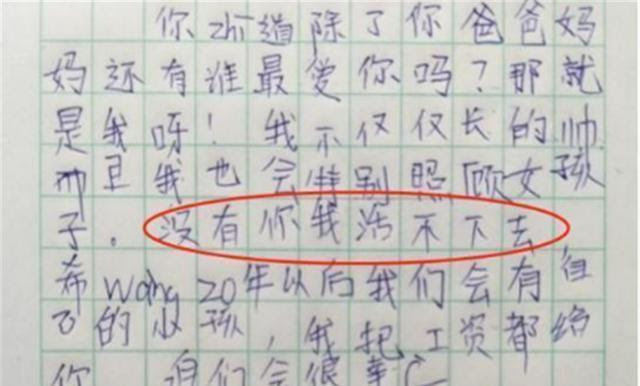 你zhī道除了你爸爸妈
妈还有谁最爱你吗？那就
是我呀！我不仅仅长的帅
而且我也会特别照顾女孩
子。没有你我活不下去
希wàng20年以后我们会有自
己的小孩，我把工资都给
你 咱们会很